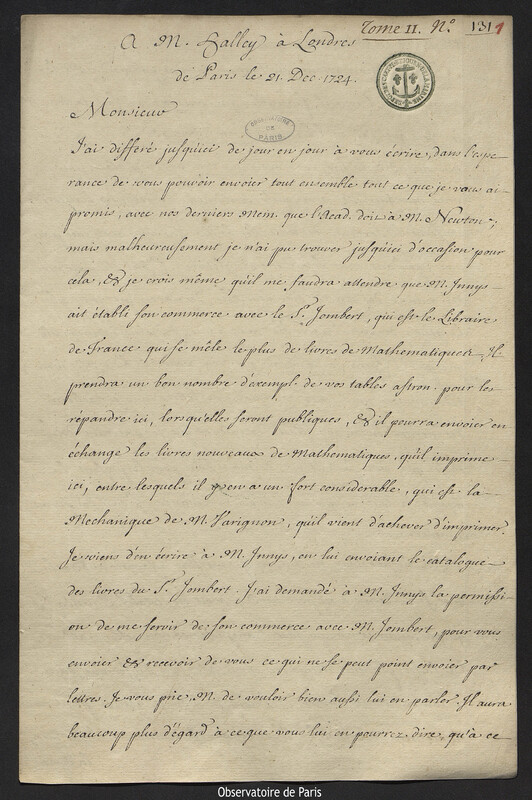 Tome II. N.o 131
A M. Halley à Londres
de Paris le 21. Dec. 1724.
OBSERVATOIRE DE PARIS
Monsieur
J'ai differé jusqu'ici de jour en jour à vous écrire, dans l'espe-
rance de vous pouvoir envoier tout ensemble tout ce que je vous ai
promis, avec nos derniers Mem. que l'Acad. doit à M. Newton;
mais malheureusement je n'ai pu trouver jusqu'ici d'occasion pour
cela, & je crois même qu'il me faudra attendre que M. Innys
ait établi son commerce avec le Sr. Jombert, qui est le Libraire
de France qui se mêle le plus de livres de Mathematiques. Il
prendra un bon nombre d'exempl. de vos tables astron. pour les
répandre ici, lorsqu'elles seront publiques, & il pourra envoier en
échange les livres nouveaux de Mathematiques, qu'il imprime
ici, entre lesquels il y en a un fort considerable, qui est la
Mechanique de M. Varignon, qu'il vient d'achever d'imprimer.
Je viens d'en écrire à M. Innys, en lui envoiant le catalogue
des livres du Sr. Jombert. J'ai demandé à M. Innys la permissi-
on de me servir de son commerce avec M. Jombert, pour vous
envoier & recevoir de vous ce qui ne se peut point envoier par
lettres. Je vous prie, M. de vouloir bien aussi lui en parler. Il aura
beaucoup plus d'égard à ce que vous lui en pourrez dire, qu'à ce
Observatoire de Paris